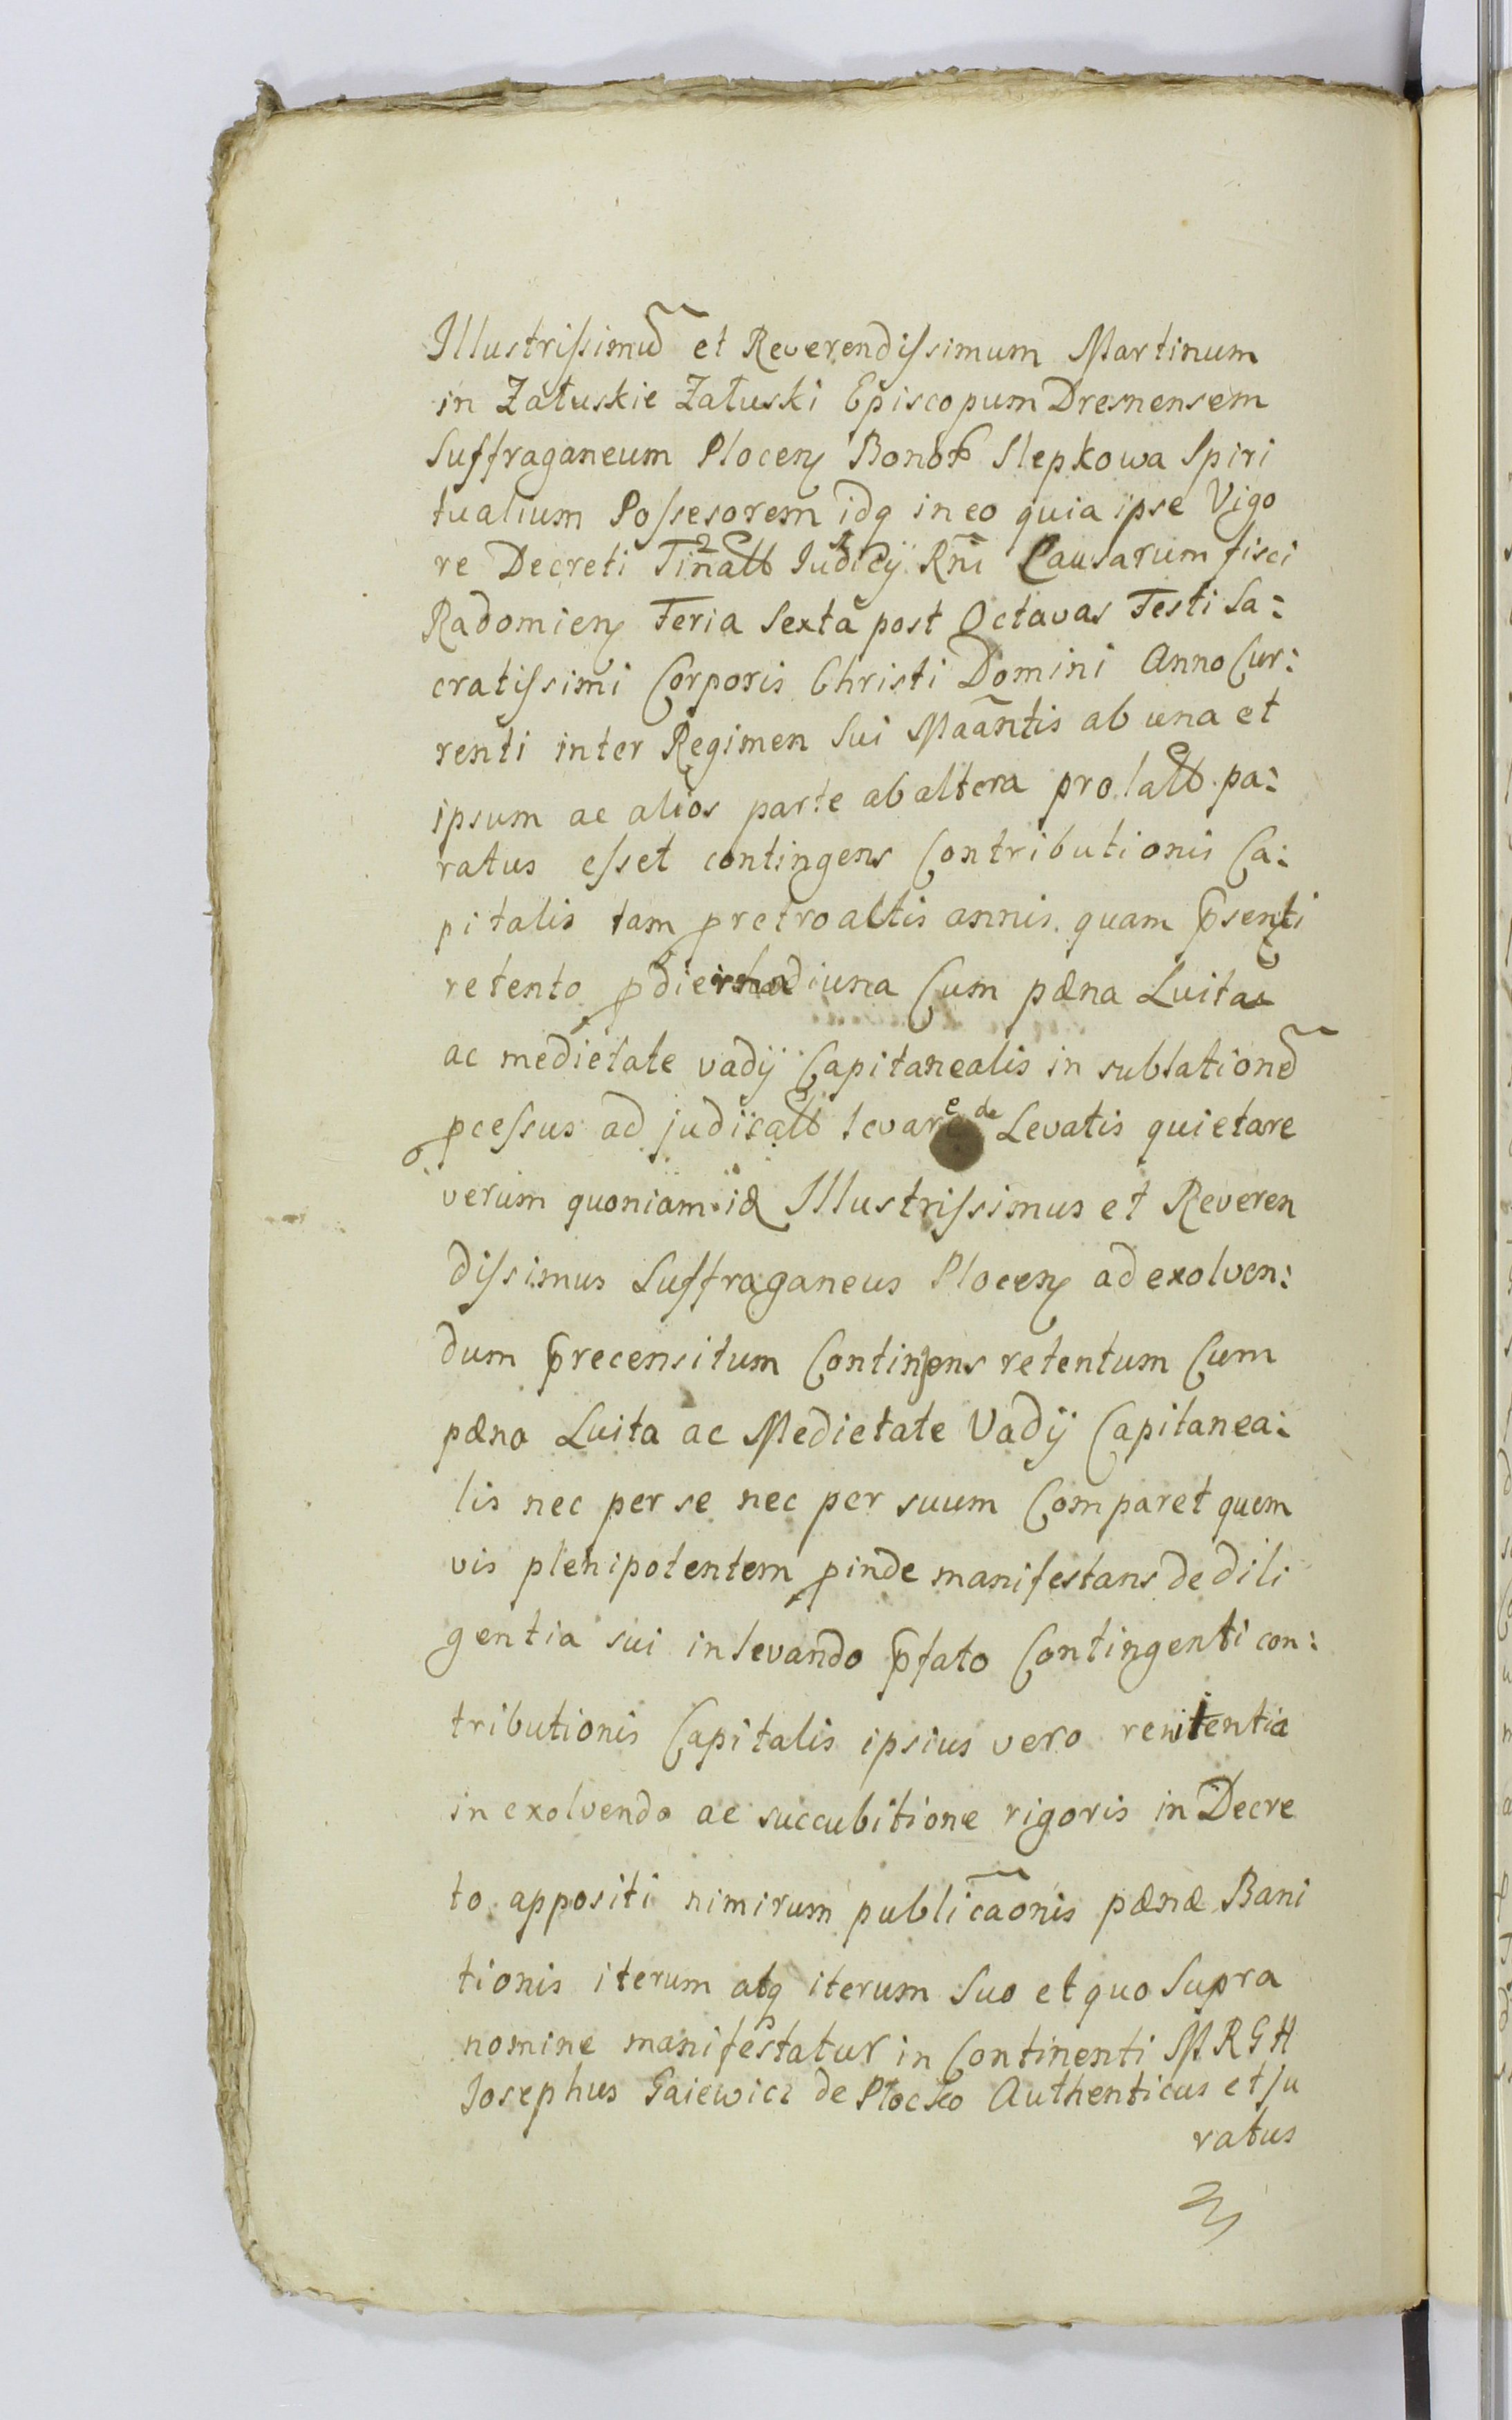 Illustrissimũ et Reverendissimum Martinum
in Załuskie Załuski Episcopum Dresnensem
Suffraganeum Plocen Bonor Slepkowa Spiri
tualium Possesorem idq in eo quia ipse Vigo
re Decreti Judicÿ Rñi Causarum fisci
Radomien Feria Sexta post Octavas Festi Sa:
cratissimi Corporis Christi Domini Anno Cur:
renti inter Regimen Sui Maãntis ab una et
ipsum ac alios parte ab altera prolatt pa:
ratus esset contingens Contributionis Ca:
pitalis tam p retroactis annis quam psenti
retento p die Cum pæna Luita
ac medietate vadÿ Capitanealis in sublationẽ
pcessus ad judicatt levare de Levatis quietare
verum quoniam id Illustrissimus et Reveren
dissimus Suffraganeus Plocen ad exolven:
dum precensitum Contingens retentum Cum
pæna Luita ac Medietate Vadÿ Capitanea:
lis nec per se nec per suum Comparet quem
vis plenipotentem pinde manifestans de dili
gentia sui in levando pfato Contingenti con:
tributionis Capitalis ipsius vero renitentia
in exolvendo ac succubitione rigoris in Decre
to appositi nimirum publicãonis pænæ Bani
tionis iterum atq iterum Suo et quo Supra
nomine manifestatur in Continenti MRGH
Josephus Gaiewicz de Płocko Authenticus et Ju
ratus